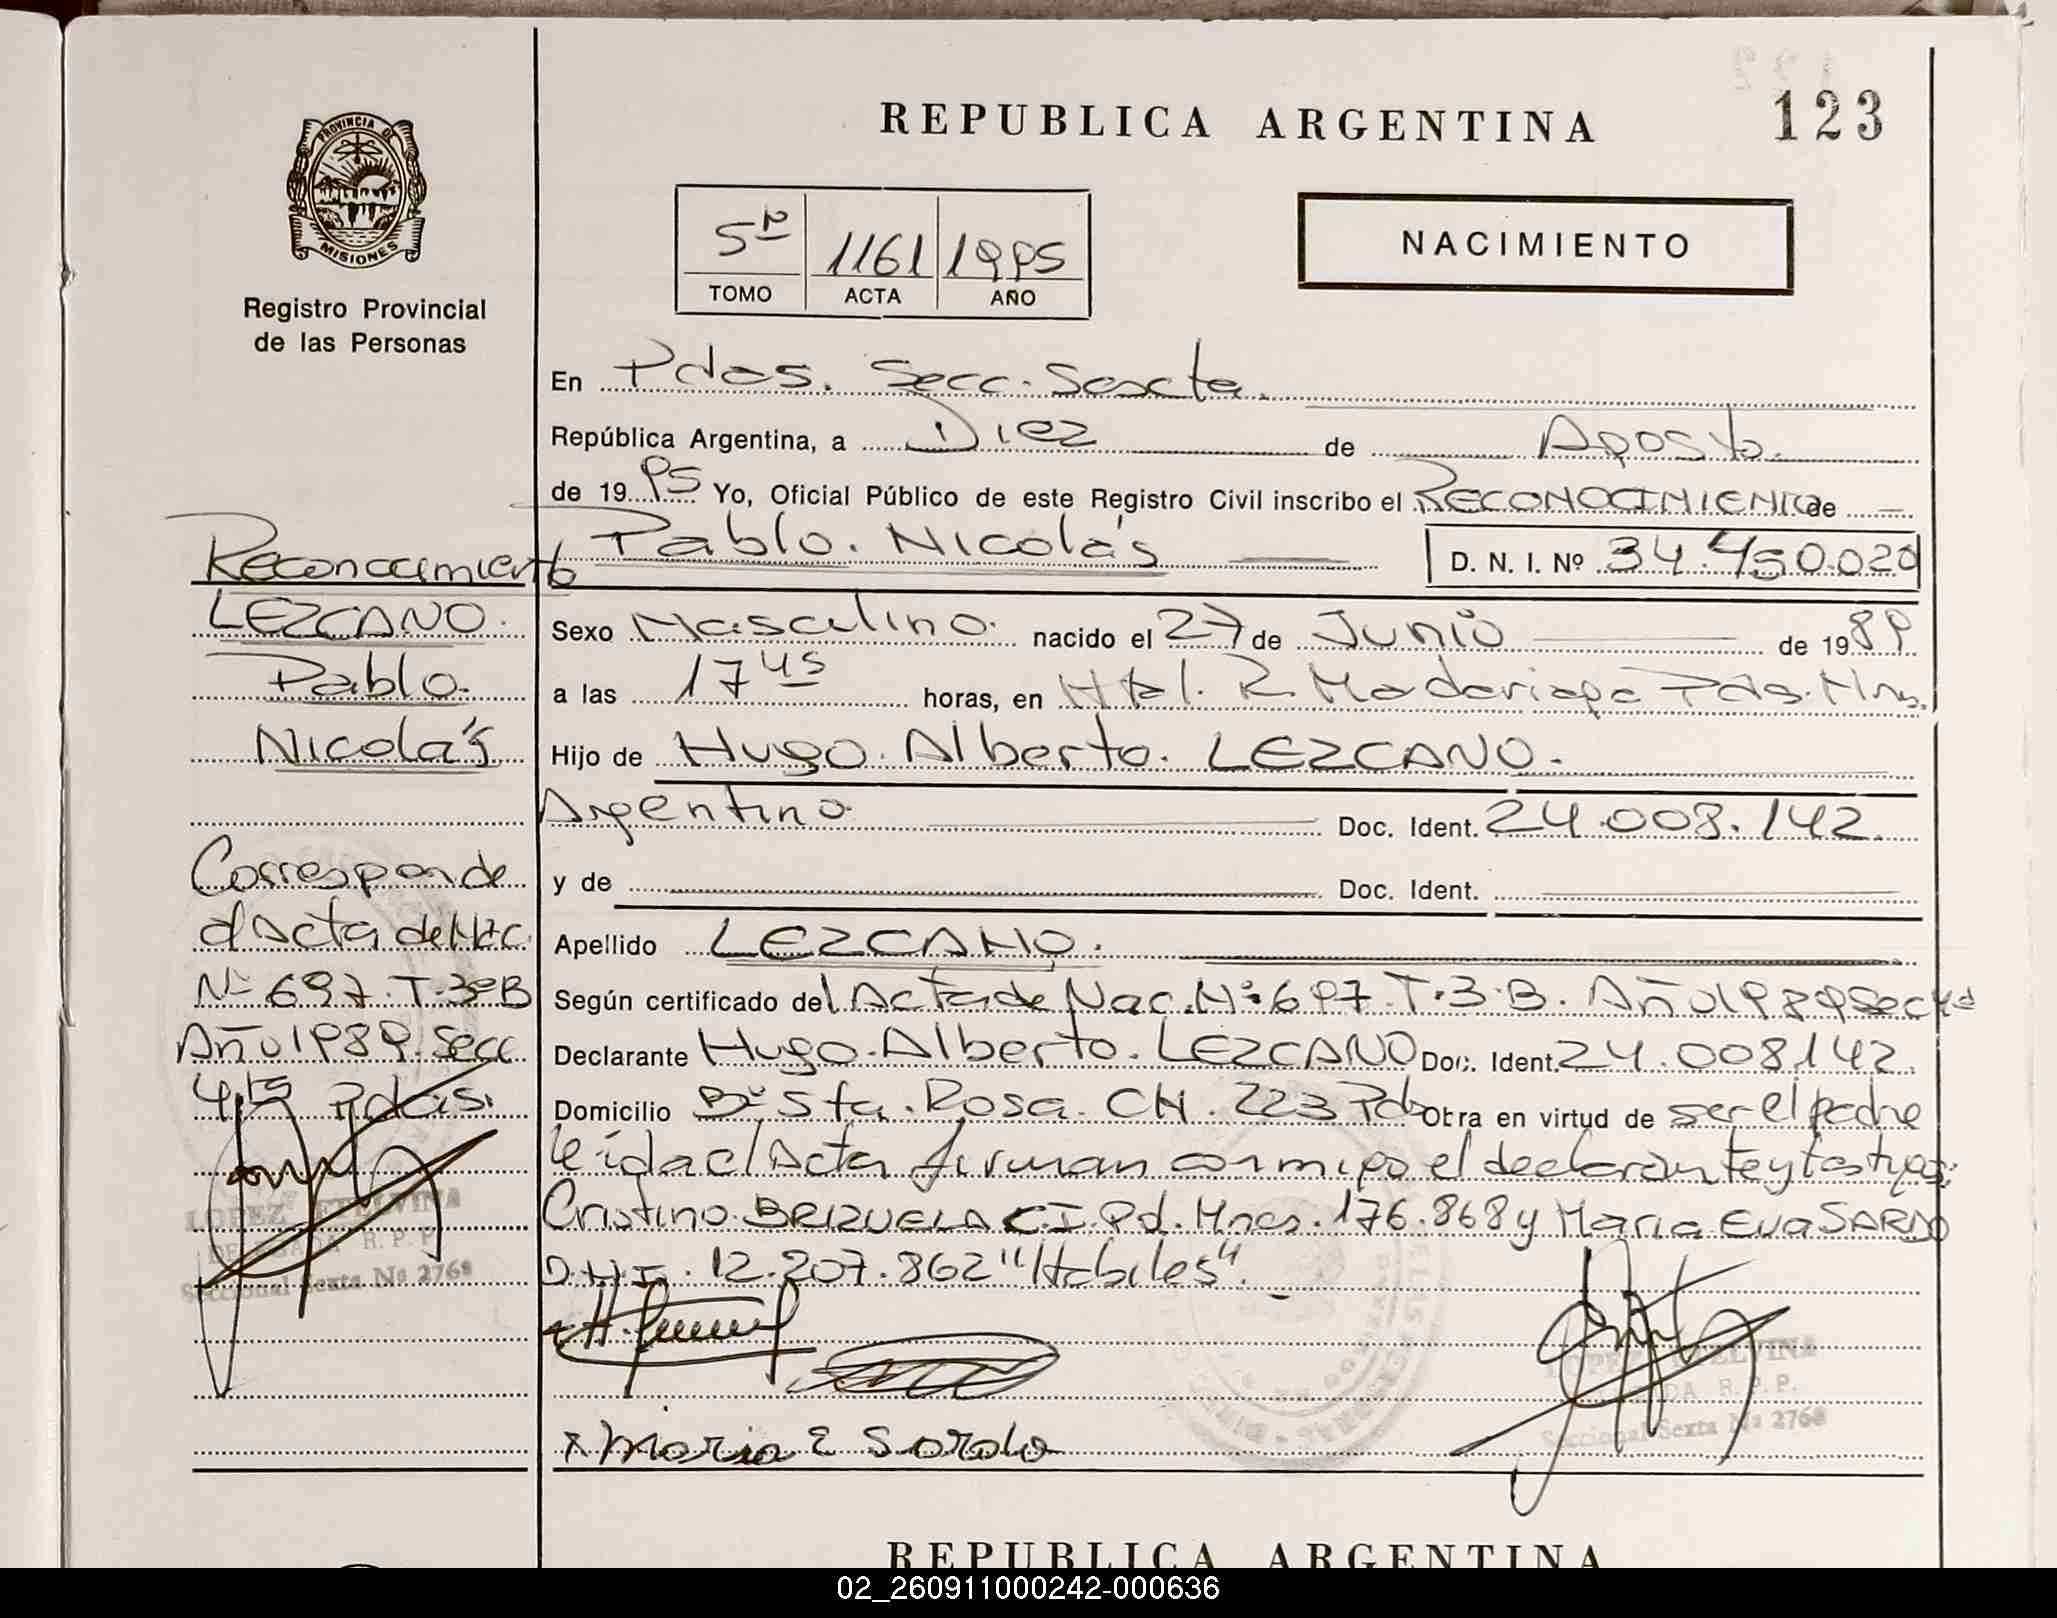 REPUBLICA ARGENTINA
123
PROVINCIA DE
MISIONES
Registro Provincial
de las Personas
5º 1161 1995
TOMO ACTA AÑO
NACIMIENTO
En Pdas. Secc. Sexta.
República Argentina, a Diez de Agosto.
de 1995 Yo, Oficial Público de este Registro Civil inscribo el RECONOCIMIENTO de
Pablo. Nicolás D. N. I. Nº 34.450.020
Sexo Masculino. nacido el 27 de Junio de 1989
a las 17 45 horas, en Htal. R. Madariaga Pdas. Mnes.
Hijo de Hugo. Alberto. LEZCANO.
Argentino. Doc. Ident. 24.008.142.
y de Doc. Ident.
Apellido LEZCANO.
Según certificado del Acta de Nac. Nº 697. T. 3. B. Año 1989 Secc 4ta
Declarante Hugo. Alberto. LEZCANO Doc. Ident. 24.008142.
Domicilio Bº Sta. Rosa. CH. 223 Pdas Obra en virtud de ser el padre
leída el Acta firman conmigo el declarante y testigos:
Cristino BRIZUELA C.I. Pd. Mnes. 176.868 y Maria Eva SARDO
D.N.I. 12.207.862 "Habiles".
x Maria E Sordo
LOPEZ ETELVINA
DELEGADA R. P. P.
Seccional Sexta Nº 2768
Reconocimiento
LEZCANO.
Pablo.
Nicolás
Corresponde
al Acta de Nac.
Nº 697. T. 3º B
Año 1989. Secc.
4ta Pdas.
LOPEZ ETELVINA
DELEGADA R. P. P.
Seccional Sexta Nº 2768
REPUBLICA ARGENTINA
02_260911000242-000636